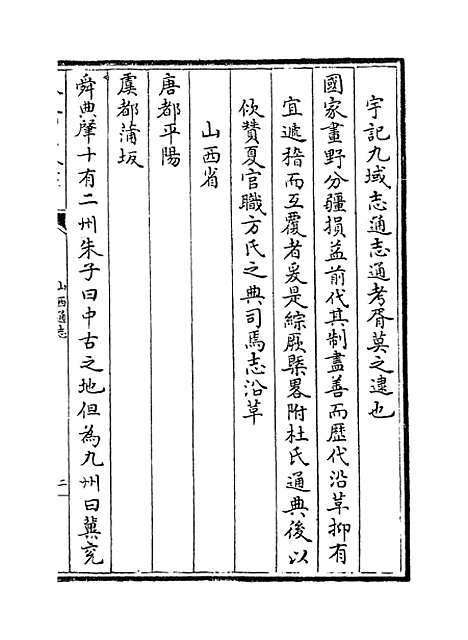 宇記九域志通志通考胥莫之逮也
國家畫野分疆損益前代其制盡善而歷代沿革抑有
宜遞稽而互覆者爰是綜厥槩畧附杜氏通典後以
佽贊夏官職方氏之典司焉志沿革
山西省
唐都平陽
虞都蒲坂
舜典肇十有二州朱子曰中古之地但為九州曰冀兖
山西通志
二